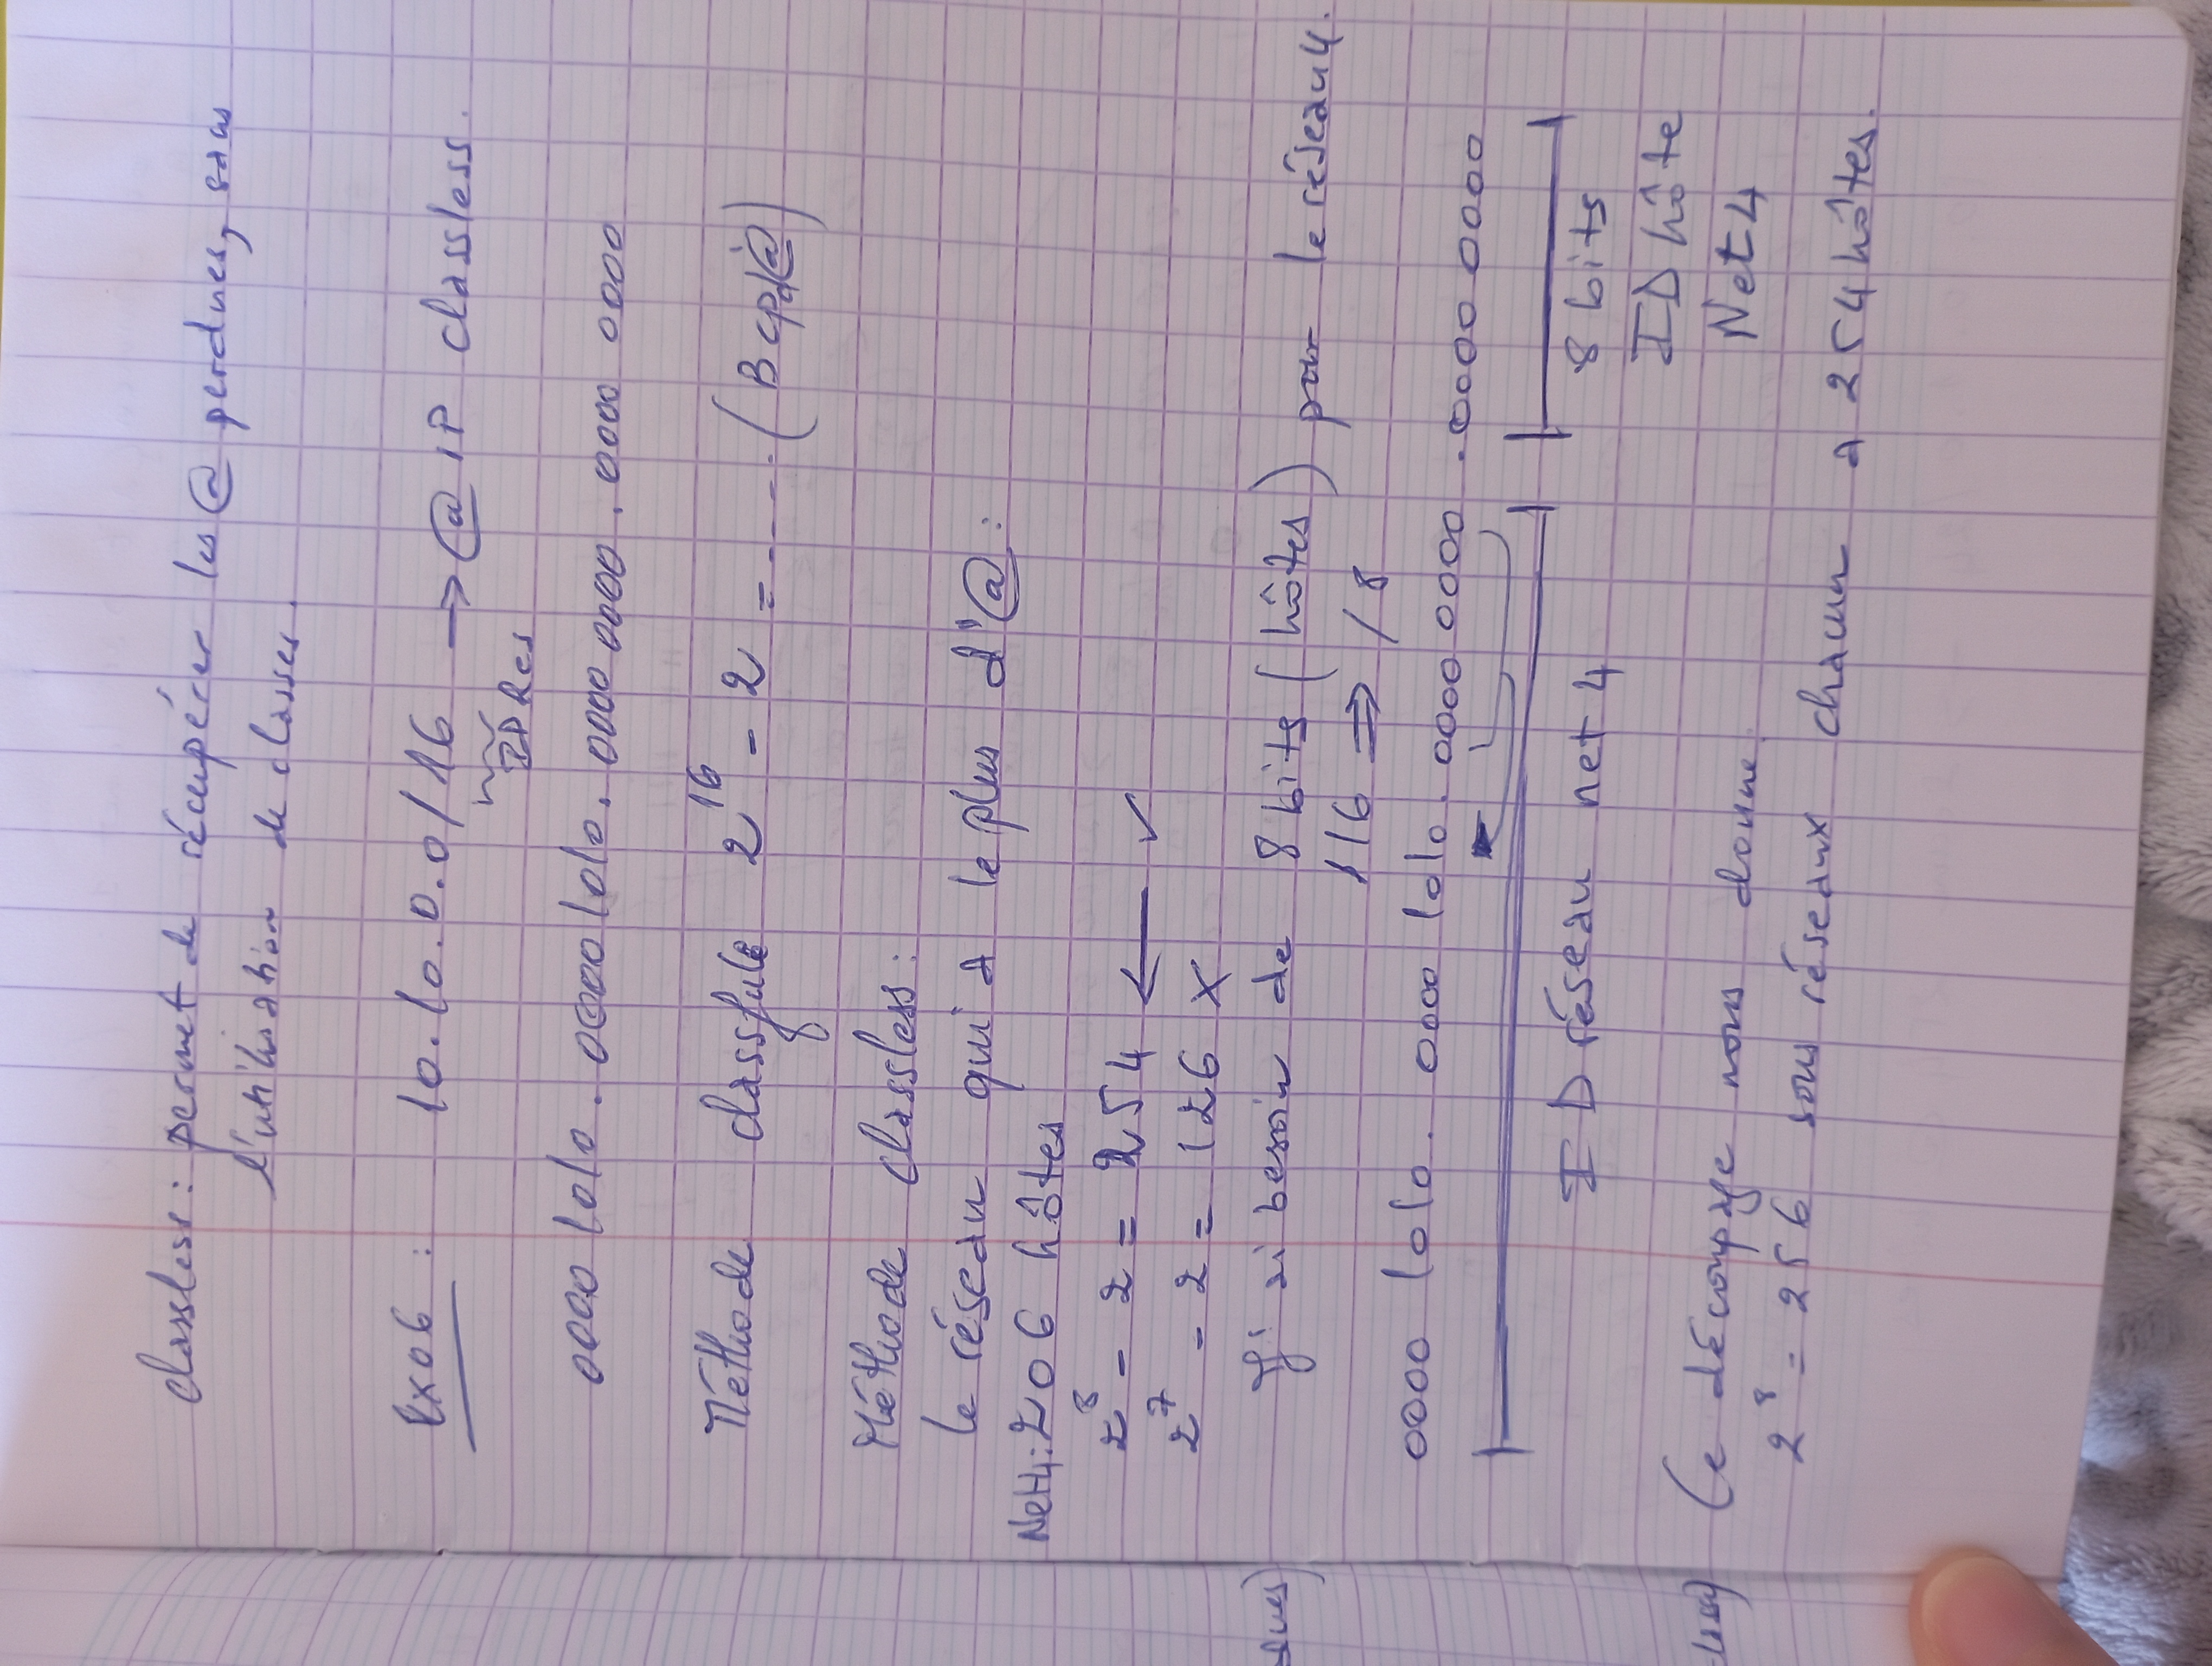 classless : permet de récupérer les @ perdues, sans
l'utilisation de classes.
Exo6 : 10.10.0.0/16 → @ IP classless.
ID Res
0000 1010 . 0000 1010 . 0000 0000 . 0000 0000
Méthode classfule 2^16 - 2 = ----- ( Bcp d'@ )
Méthode classless :
le réseau qui a le plus d'@ :
Net4 : 206 hôtes
2^8 - 2 = 254 ← ✓
2^7 - 2 = 126 ×
J'ai besoin de 8 bits ( hôtes ) pour le réseau 4.
/16 ⇒ /8
0000 1010 . 0000 1010 . 0000 0000 . 0000 0000
ID réseau net 4
8 bits
ID hôte
Net 4
ques)
Ce découpage nous donne
2^8 = 256 sous réseaux chacun a 254 hôtes.